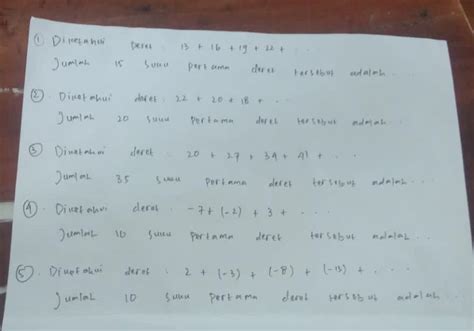 ① Diketahui Deret : 13 + 16 + 19 + 22 + ...
Jumlah 15 suku pertama deret tersebut adalah ..
② . Diketahui deret : 22 + 20 + 18 + ...
Jumlah 20 suku pertama deret tersebut adalah ..
③ Diketahui deret : 20 + 27 + 34 + 41 + ...
Jumlah 35 suku pertama deret tersebut adalah ..
④ . Diketahui deret : -7 + (-2) + 3 + ...
Jumlah 10 suku pertama deret tersebut adalah ..
⑤ . Diketahui deret : 2 + (-3) + (-8) + (-13) + ...
Jumlah 10 suku pertama deret tersebut adalah ..